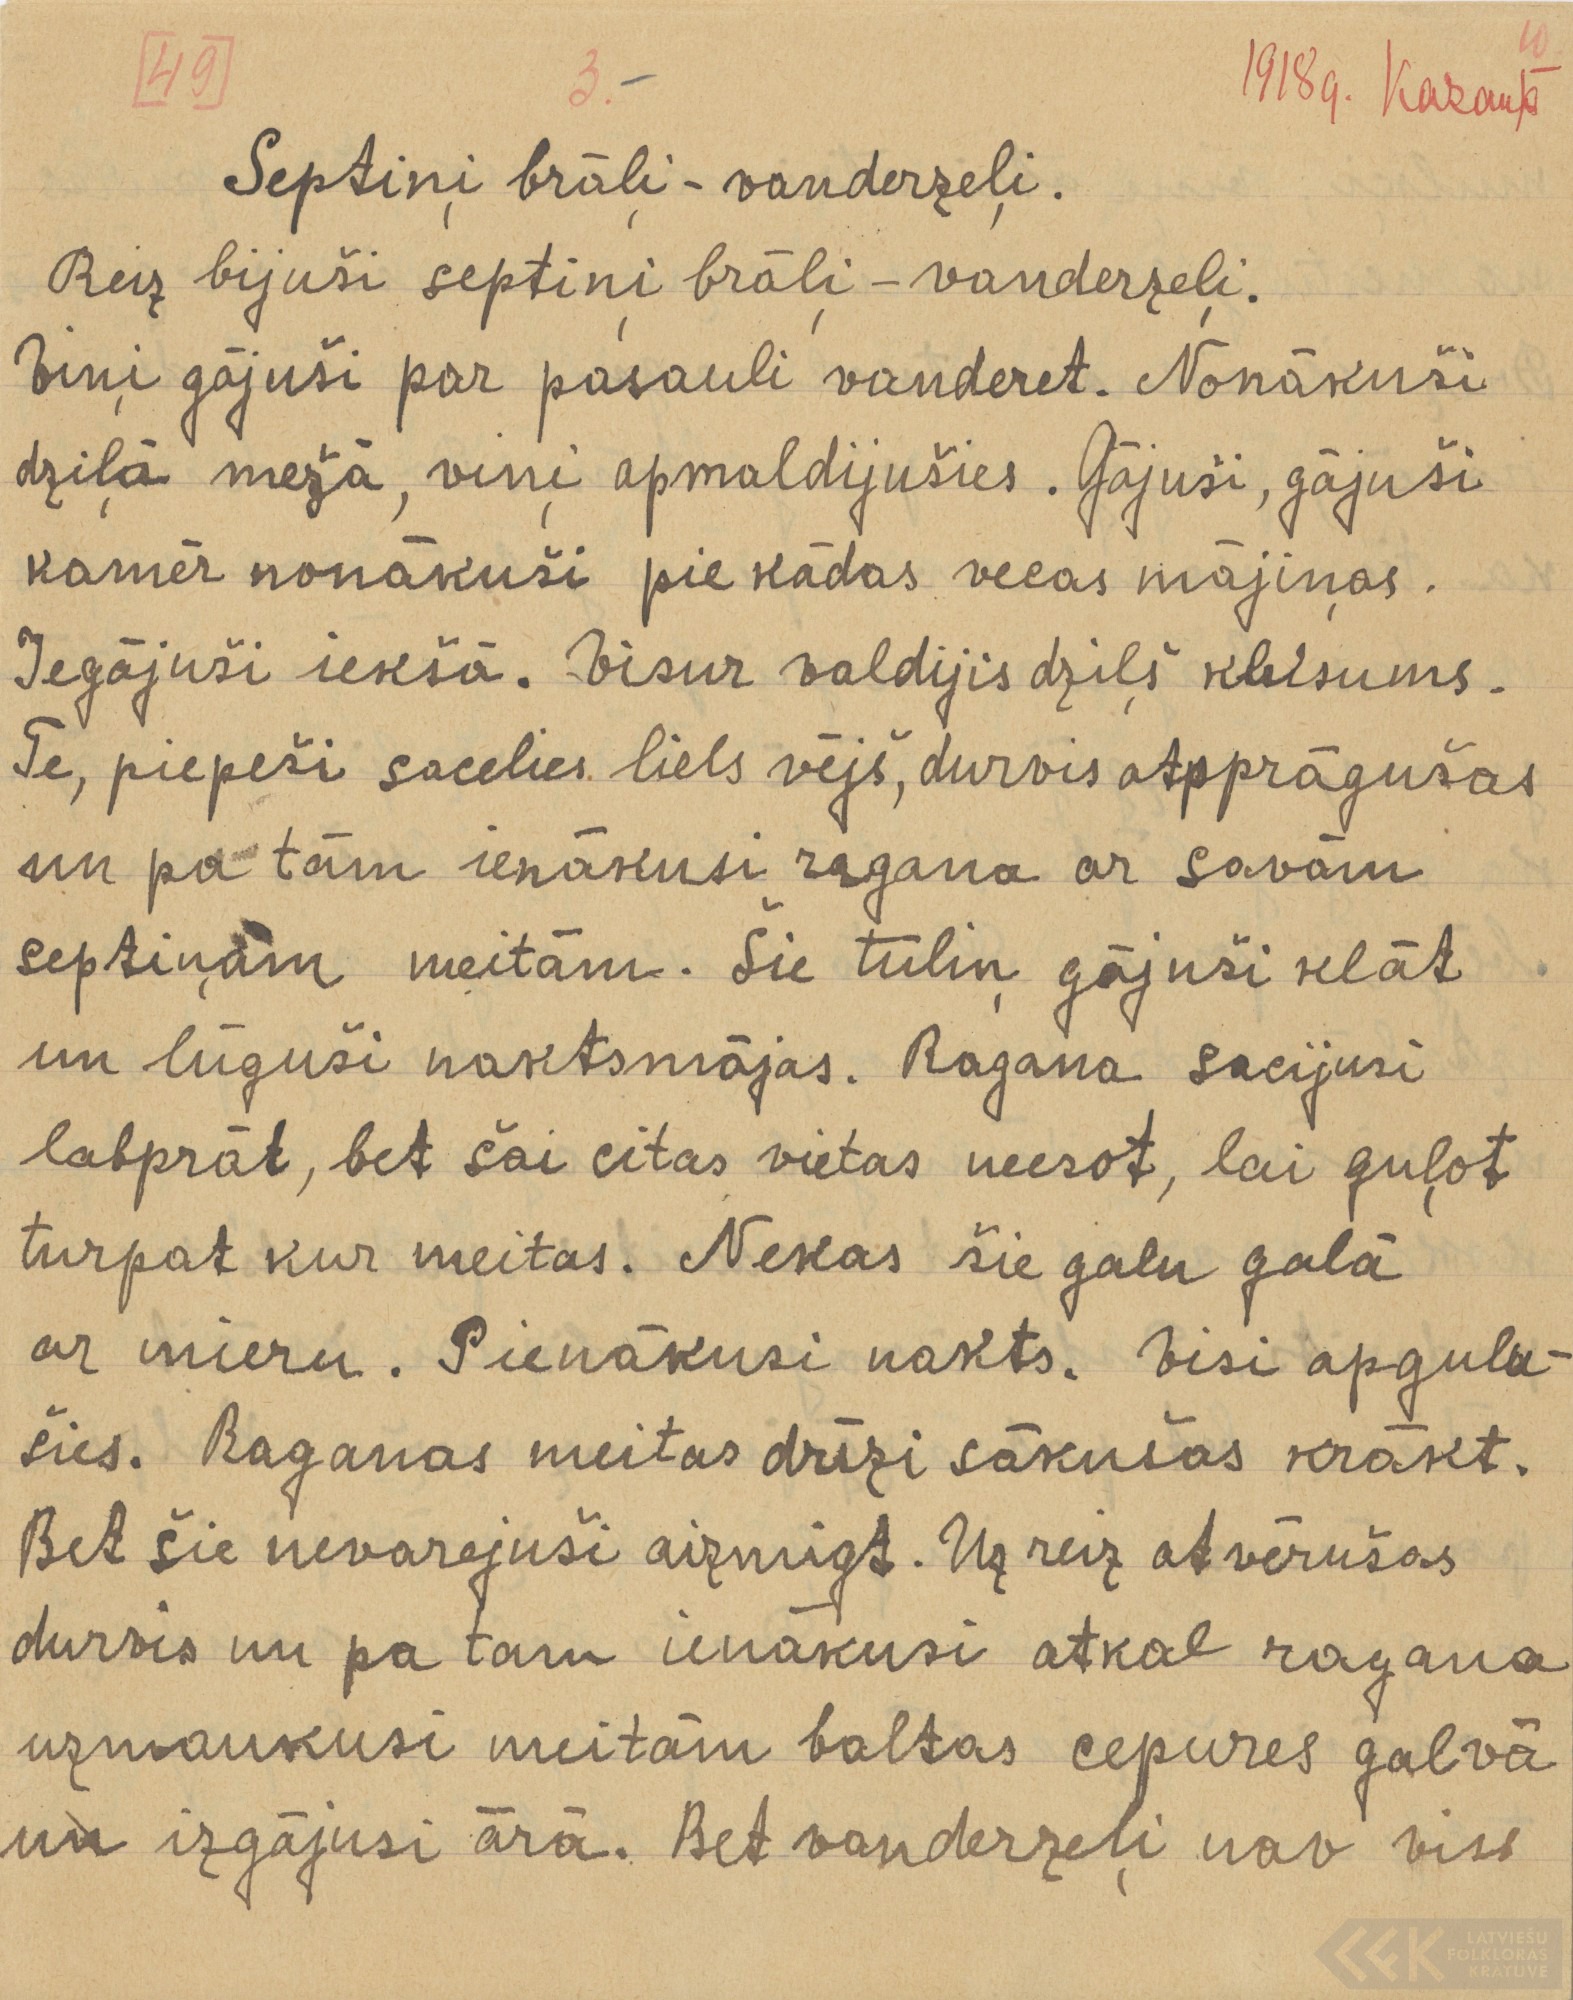 [49] 3.- 1918g. Kazaņā 10
Septiņi brāļi - vanderzeļi.
Reiz bijuši septiņi brāļi - vanderzeļi.
Viņi gājuši par pasauli vanderet. Nonākuši
dziļā mežā, viņi apmaldijušies. Gājuši, gājuši
kamēr nonākuši pie kādas vecas mājiņas.
Iegājuši iekšā. Visur valdijis dziļš klusums.
Te, piepeši sacelies liels vējš, durvis atpprāgušas
un pa tām ienākusi ragana ar savām
septiņām meitām. Šie tūliņ gājuši klāt
un lūguši naktsmājas. Ragana sacijusi
labprāt, bet šai citas vietas neesot, lai guļot
turpat kur meitas. Nekas šie galu galā
ar mieru. Pienākusi nakts. Visi apgulu-
šies. Raganas meitas drīzi sākušas krākt.
Bet šie nevarejuši aizmigt. Uz reiz atvērušas
durvis un pa tam ienākusi atkal ragana
uzmaukusi meitām baltas cepures galvā
un izgājusi ārā. Bet vanderzeļi nav viss
LATVIEŠU
FOLKLORAS
KRĀTUVE